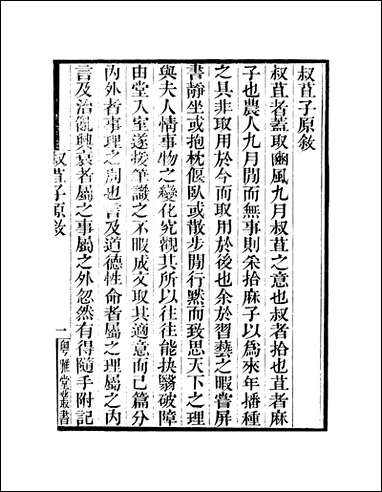 叔苴子原敘
叔苴者蓋取豳風九月叔苴之意也叔者拾也苴者麻
子也農人九月閒而無事則采拾麻子以為來年播種
之具非取用於今而取用於後也余於習藝之暇嘗屏
書靜坐或抱枕偃臥或散步閒行黙而致思天下之理
與夫人情事物之變化究觀其所以往往能抉翳破障
由堂入室遂援筆識之不暇成文取其適意而已篇分
內外者事理之閒也言及道德性命者屬之理屬之內
言及治亂興衰者屬之事屬之外忽然有得隨手附記
叔苴子原敘
一
粵雅堂叢書